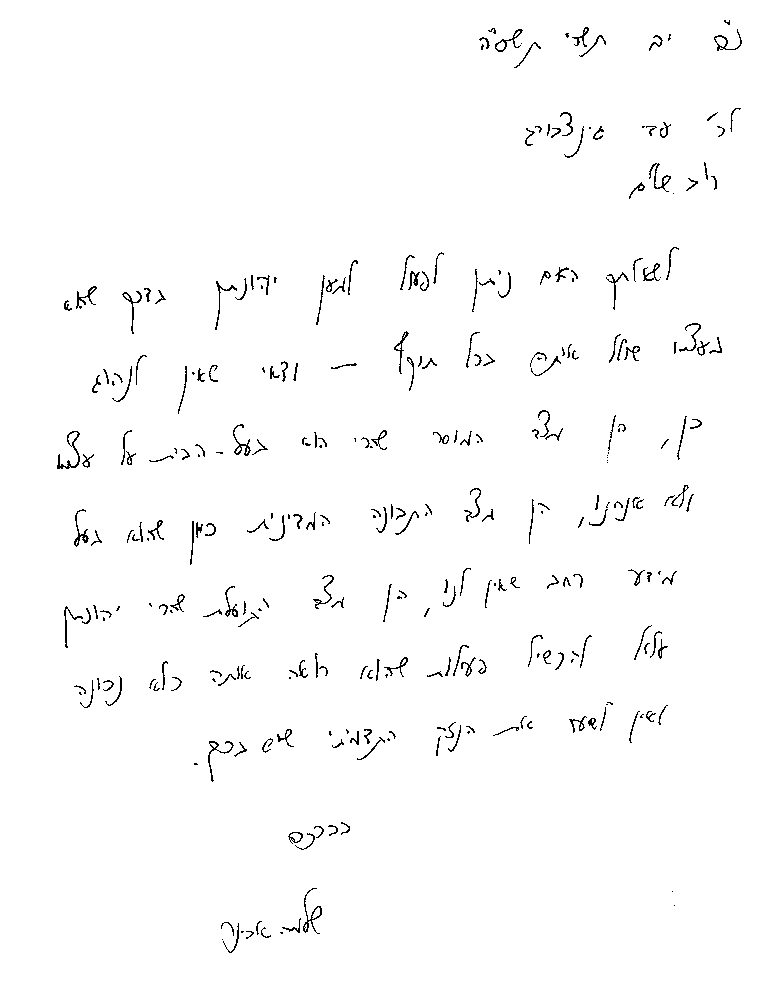 נ"ס יב תשרי תשס"ה
לר' עדי גינצבורג
רוב שלום
לשאלתך האם ניתן לפעול למען יהונתן בדרך שהוא
בעצמו שולל אותם בכל תוקף – ודאי שאין לנהוג
כן, הן מצד המוסר שהרי הוא בעל-הבית על עצמו
ולא אנחנו, הן מצד התבונה המדינית כיון שהוא בעל
מידע רחב שאין לנו, הן מצד התועלת שהרי יהונתן
עלול להכשיל פעולות שהוא רואה אותה כלא נכונה
ואין לשער את הנזק התדמיתי שיש בכך.
בברכה
שלמה אבינר